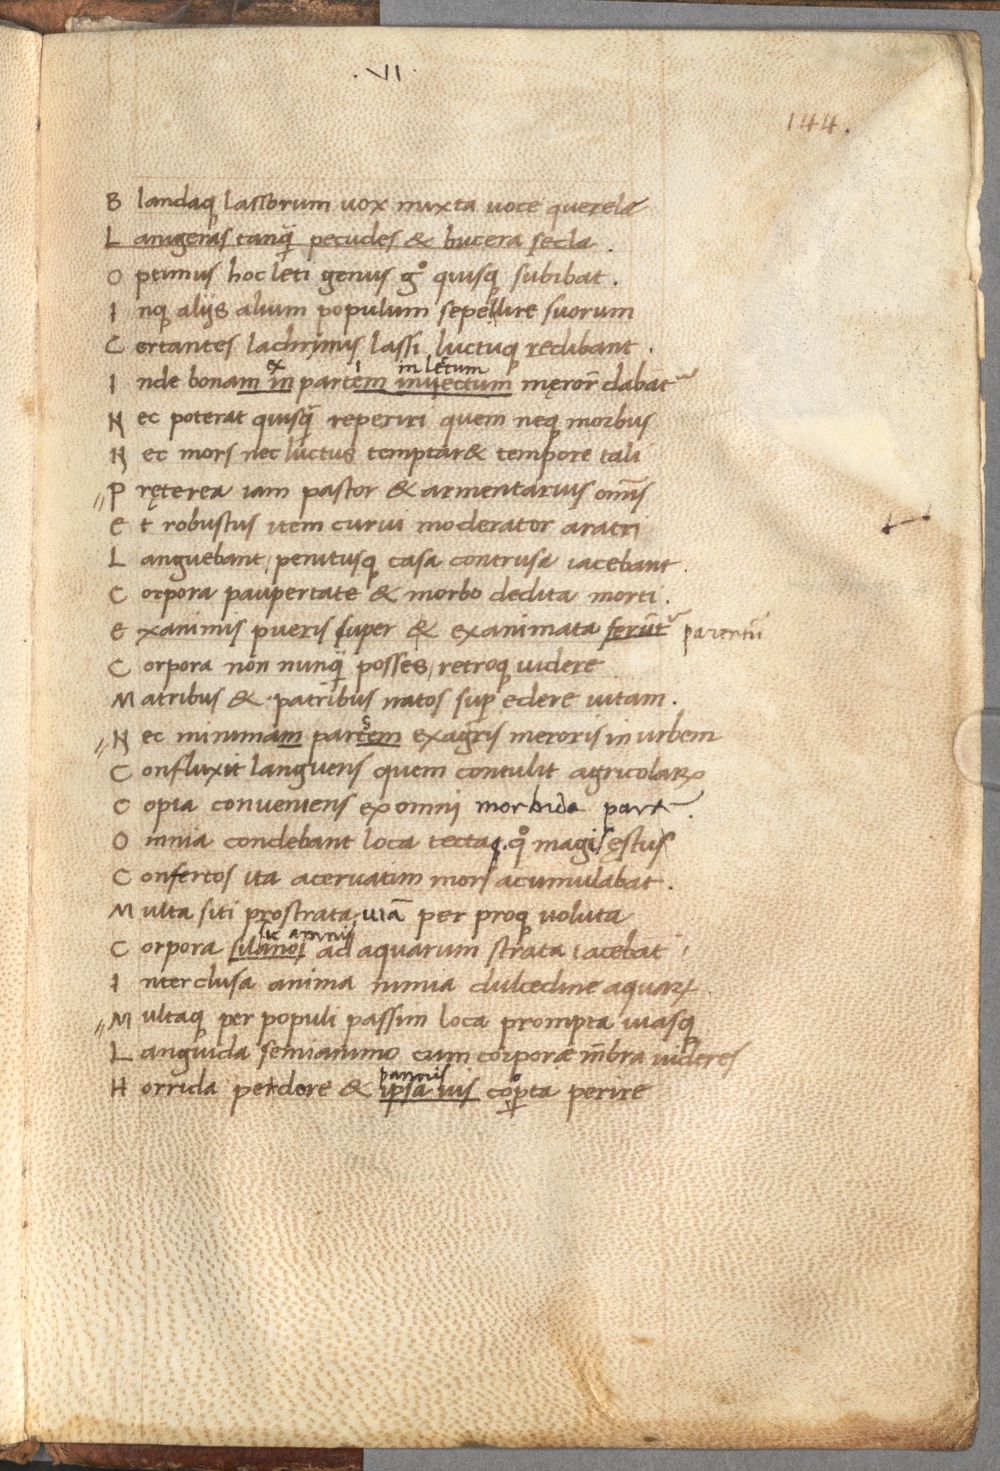 .VI.
144.
B landaq lassorum uox mixta uoce querelæ
L anigeras tanq̃ pecudes & bucera secla .
O ptimus hoc leti genus g° quisq subibat .
I nq alijs alium populum sepellire suorum
C ertantes lachrymis lassi luctuq redibant .
ex i in letum
I nde bonam in partem inuectum męror̃ dabãt
N ec poterat quisq̃ reperiri quem neq morbus
N ec mors nec luctus temptar& tempore tali
P ręterea iam pastor & armentarius om̃is
E t robustus item curui moderator aratri
L anguebant, penitusq casa contrusa iacebant .
C orpora paupertate & morbo dedita morti .
E xanimis pueris super & exanimata ferũt᷑ parentũ
C orpora non nunq̃ posses, retroq uidere
M atribus & patribus natos sup edere uitam .
s
N ec minimam partem ex agris meroris in urbem
C onfluxit languens quem contulit agricolaꝝ
C opia conueniens ex omni morbida parte .
O mnia condebant loca tectaq. q° magis ęstus
C onfertos ita aceruatim mors acumulabat .
M ulta siti prostrata uiã per proq uoluta
C orpora silanos ad aquarum strata iacebat
I nterclusa anima nimia dulcedine aquaꝝ .
M ultaq per populi passim loca prompta uiasq
L anguida semianimo cum corporæ m̃bra uideres
pannis
H orrida pedore & ipsa uis coꝑta perire